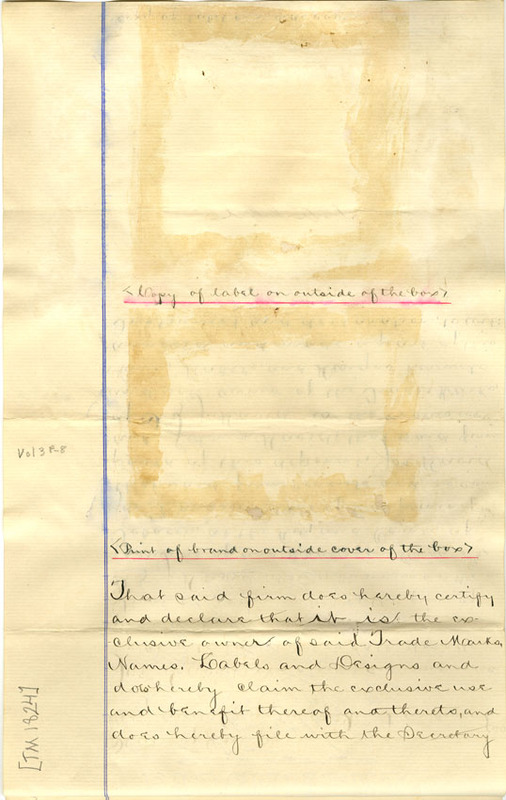 <Copy of label on outside of the box>
Vol 3 P-8
<Print of brand on outside cover of the box>
That said firm does hereby certify
and declare that it is the ex-
clusive owner of said Trade Marks,
Names, Labels and Designs and
does hereby claim the exclusive use
and benefit thereof and thereto, and
does hereby file with the Secretary
[TM 1824]